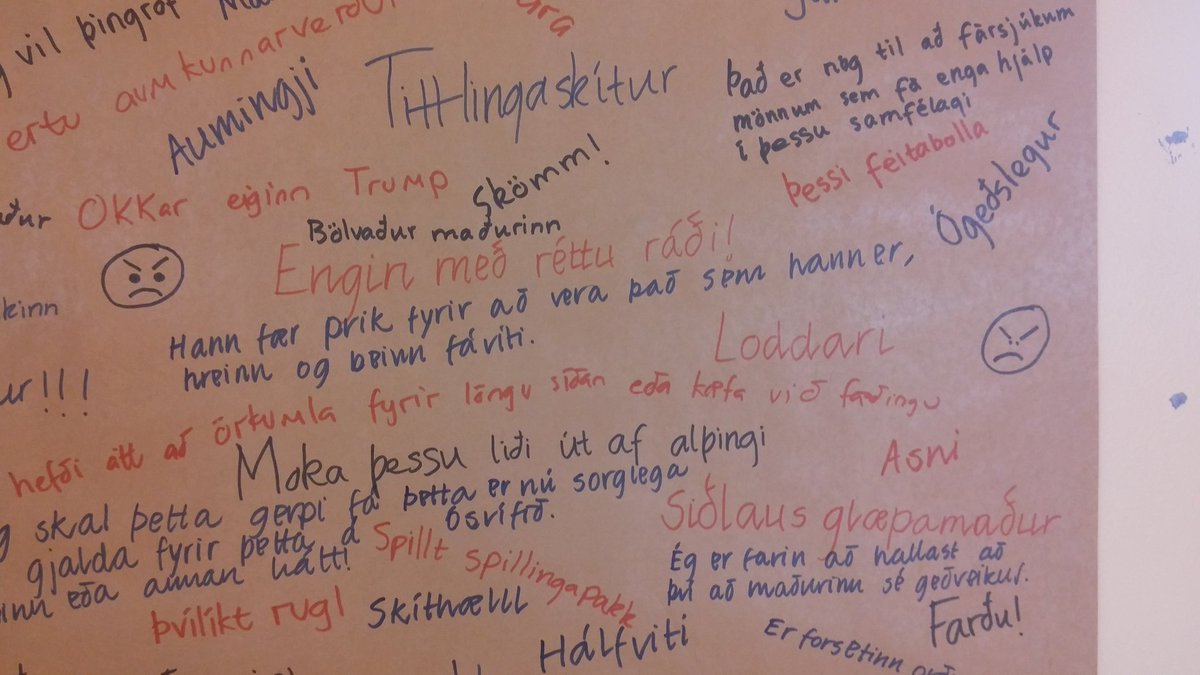 vil þingrof
ertu aumkunnarverður
Aumingji
Tittlingaskítur
Það er nóg til að fársjúkum
mönnum sem fá enga hjálp
í þessu samfélagi
þessi feitabolla
Ógeðslegur
OKKar eiginn Trump
Skömm!
Bölvaður maðurinn
Engin með réttu ráði!
Hann fær prik fyrir að vera það sem hann er,
hreinn og beinn fáviti.
Loddari
hefði átt að örkumla fyrir löngu síðan eða kæfa við fæðingu
Moka þessu liði út af alþingi
Asni
skal þetta gerpi fá
gjalda fyrir þetta á
eða annan hátt!
þetta er nú sorglega
ósvífið.
Siðlaus glæpamaður
Spillt spillingapakk
Ég er farin að hallast að
því að maðurinn sé geðveikur.
þvílíkt rugl
Skíthælll
Farðu!
Hálfviti
Er forsetinn